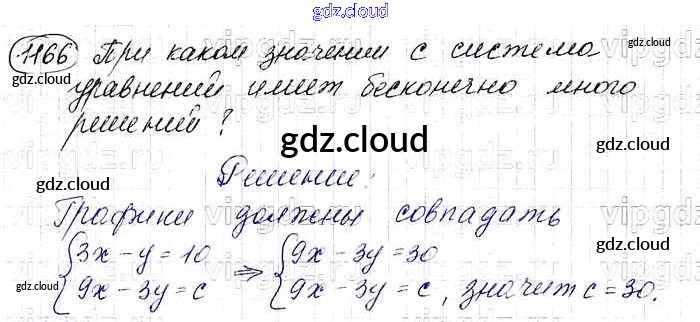 gdz.cloud
1166 При каком значении с система
уравнений имеет бесконечно много
решений?
gdz.cloud
gdz.cloud
gdz.cloud
gdz.cloud
Решение:
Графики должны совпадать
{3x − y = 10 ⇒ {9x − 3y = 30
{9x − 3y = c {9x − 3y = c, значит c = 30.
gdz.cloud
gdz.cloud
gdz.cloud